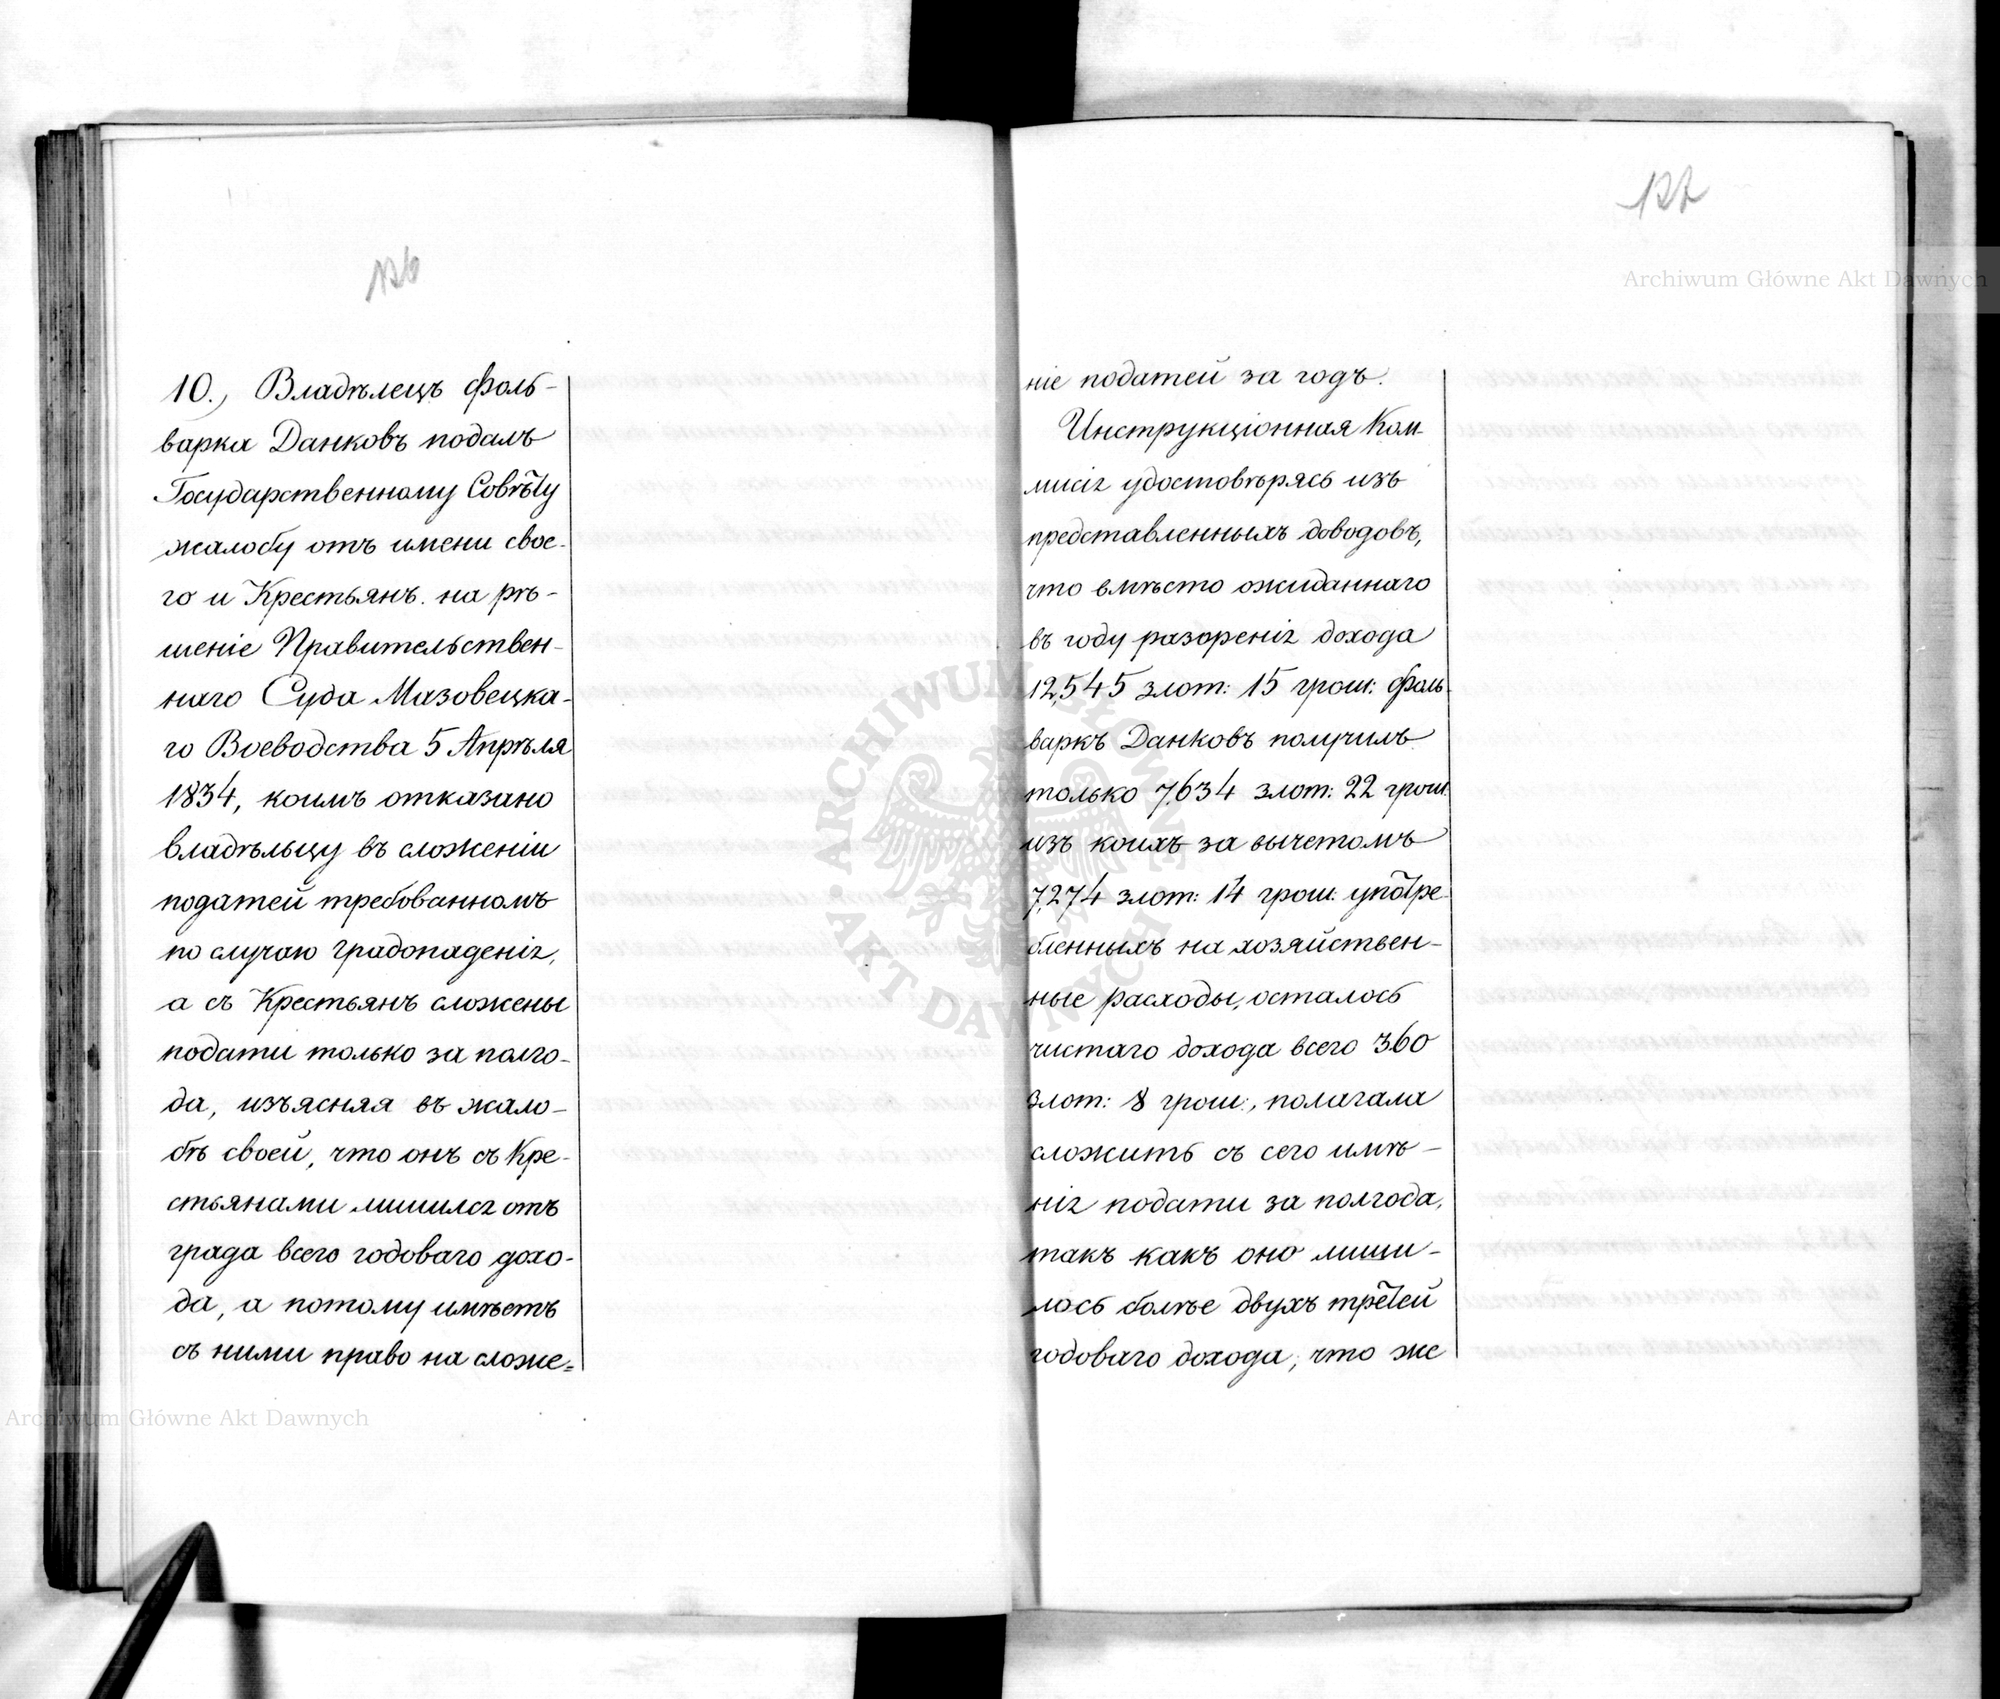 126
10., Владѣлецъ фоль-
варка Данковъ подалъ
Государственному Совѣту
жалобу отъ имени свое-
го и Крестьянъ на рѣ-
шеніе Правительствен-
наго Суда Мазовецка-
го Воеводства 5 Апрѣля
1834, коимъ отказано
владѣльцу въ сложеніи
податей требованномъ
по случаю градопаденія,
а съ Крестьянъ сложены
подати только за полго-
да, изъясняя въ жало-
бѣ своей, что онъ съ Кре-
стьянами лишился отъ
града всего годоваго дохо-
да, а потому имѣетъ
съ ними право на сложе=
127
ніе податей за годъ.
Инструкціонная Ком-
мисія удостовѣрясь изъ
представленныхъ доводовъ,
что вмѣсто ожиданнаго
въ году разоренія дохода
12,545 злот: 15 грош: фоль-
варкъ Данковъ получилъ
только 7,634 злот: 22 грош:
изъ коихъ за вычетомъ
7,274 злот: 14 грош: употре-
бленныхъ на хозяйствен-
ные расходы, осталось
чистаго дохода всего 360
злот: 8 грош:, полагала
сложить съ сего имѣ-
нія подати за полгода,
такъ какъ оно лиши-
лось болѣе двухъ третей
годоваго дохода; что же
Archiwum Główne Akt Dawnych
ARCHIWUM GŁÓWNE
AKT DAWNYCH
Archiwum Główne Akt Dawnych